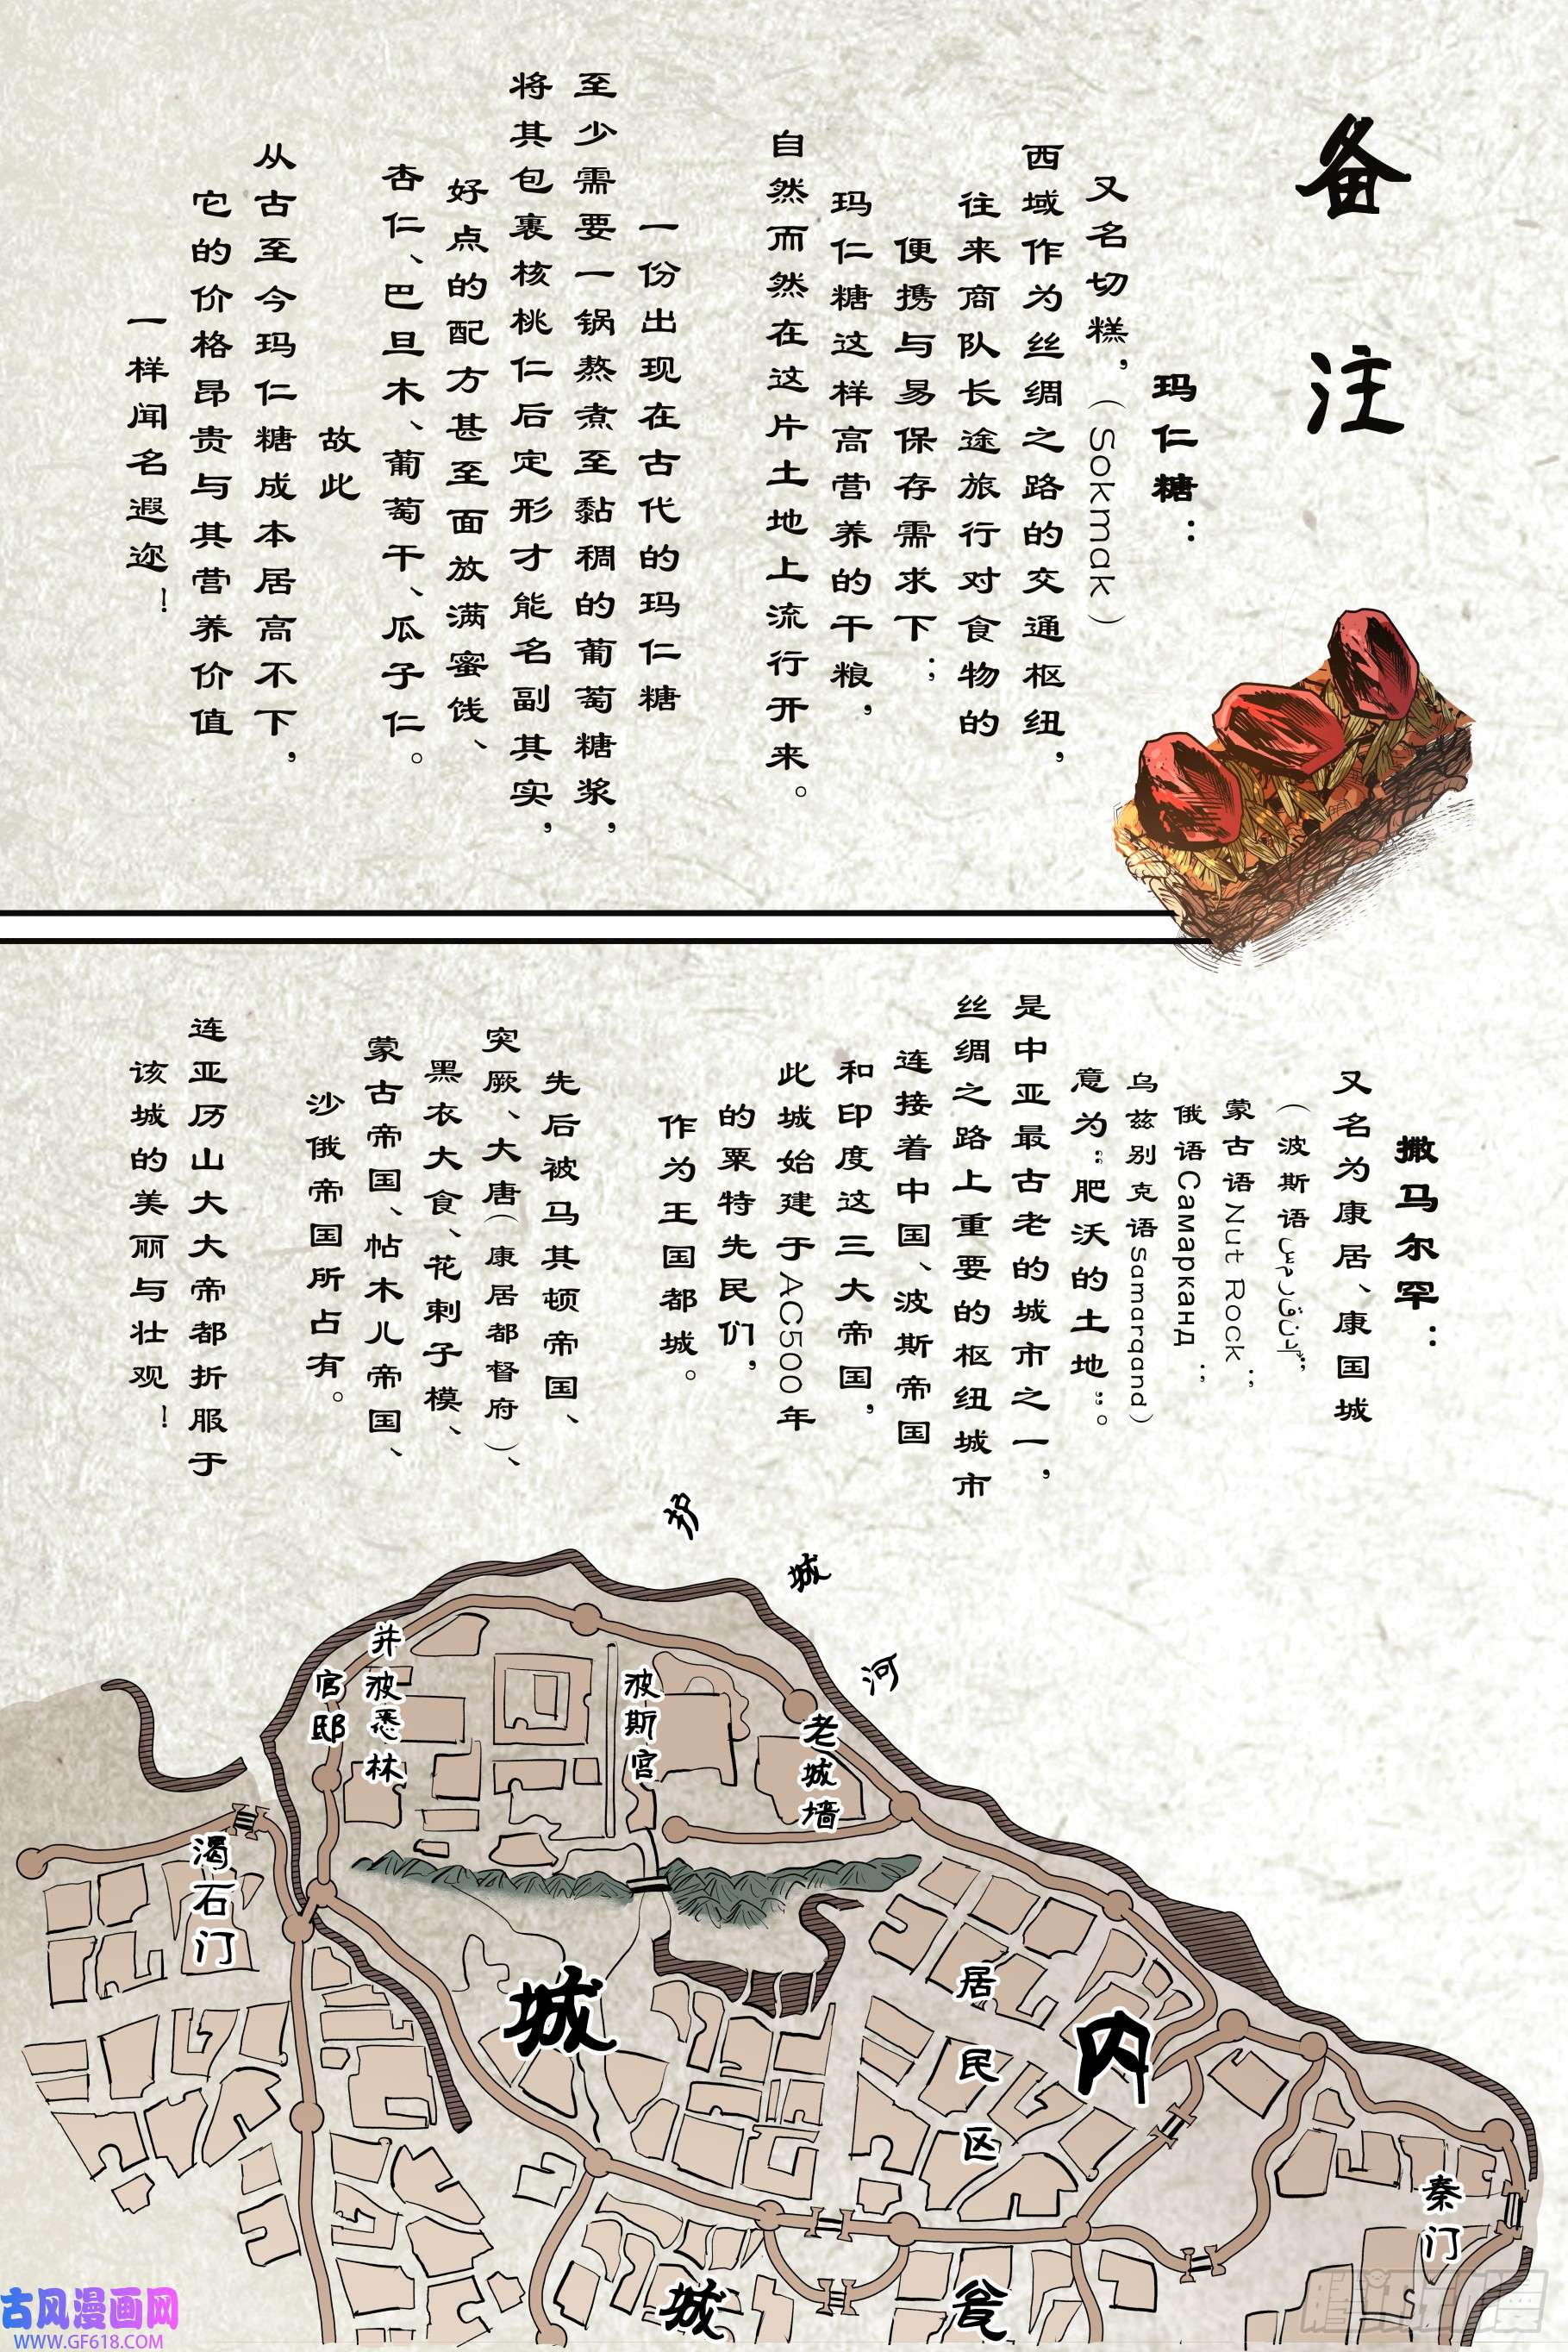 备注
玛仁糖：
又名切糕，（Sokmak）
西域作为丝绸之路的交通枢纽，
往来商队长途旅行对食物的
便携与易保存需求下；
玛仁糖这样高营养的干粮，
自然而然在这片土地上流行开来。
一份出现在古代的玛仁糖
至少需要一锅熬煮至黏稠的葡萄糖浆，
将其包裹核桃仁后定形才能名副其实，
好点的配方甚至面放满蜜饯、
杏仁、巴旦木、葡萄干、瓜子仁。
故此
从古至今玛仁糖成本居高不下，
它的价格昂贵与其营养价值
一样闻名遐迩！
撒马尔罕：
又名为康居、康国城
（波斯语سمرقند；
蒙古语Nut Rock；
俄语Самарканд；
乌兹别克语samarqand）
意为“肥沃的土地”。
是中亚最古老的城市之一，
丝绸之路上重要的枢纽城市
连接着中国、波斯帝国
和印度这三大帝国，
此城始建于AC500年
的粟特先民们，
作为王国都城。
先后被马其顿帝国、
突厥、大唐（康居都督府）、
黑衣大食、花剌子模、
蒙古帝国、帖木儿帝国、
沙俄帝国所占有。
连亚历山大大帝都折服于
该城的美丽与壮观！
护城河
并波悉林
官邸
波斯宫
老城墙
渴石门
城内
居民区
秦门
瓮城
古风漫画网
WWW.GF618.COM